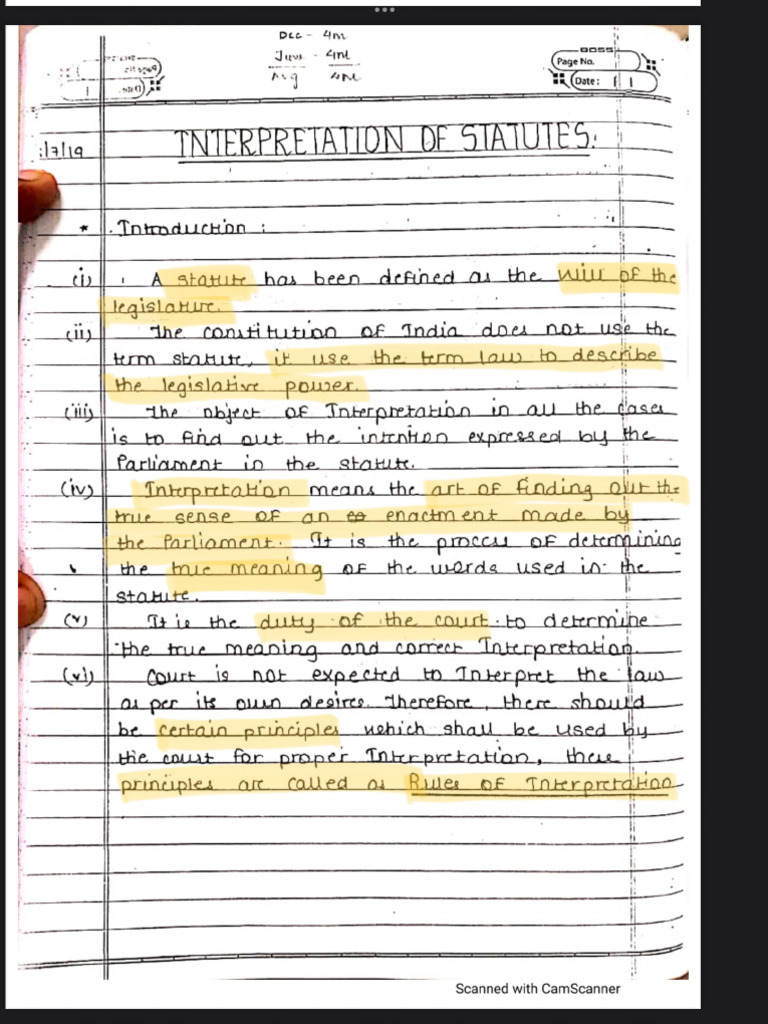 Dec - 4m
June - 4m
Aug 4m
BOSS
Page No.
Date:
:/7/19
INTERPRETATION OF STATUTES.
* Introduction :
(i) A statute has been defined as the will of the
legislature.
(ii) The constitution of India does not use the
term statute, it use the term law to describe
the legislative power.
(iii) The object of Interpretation in all the cases
is to find out the intention expressed by the
Parliament in the statute.
(iv) Interpretation means the art of finding out the
true sense of an enactment made by
the Parliament. It is the process of determining
the true meaning of the words used in the
statute.
(v) It is the duty of the court to determine
the true meaning and correct Interpretation.
(vi) Court is not expected to Interpret the law
as per its own desires. Therefore, there should
be certain principles which shall be used by
the court for proper Interpretation, these
principles are called as Rules of Interpretation
Scanned with CamScanner